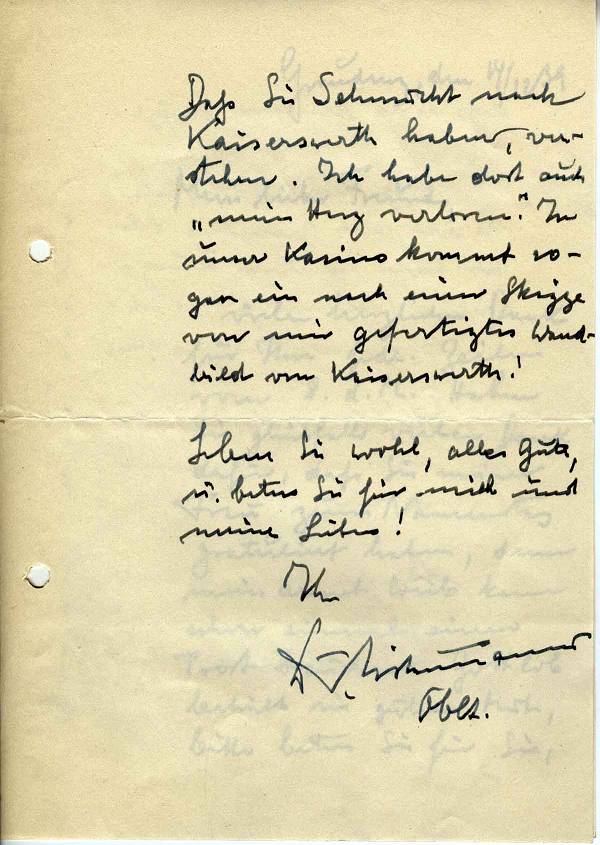 Daß Sie Sehnsucht nach
Kaiserswerth haben, ver-
stehen. Ich habe dort auch
„mein Herz verloren“. In
unser Kasino kommt so-
gar ein nach einer Skizze
von mir gefertigtes Wand-
bild von Kaiserswerth!
Leben Sie wohl, alles Gute,
u. beten Sie für mich und
meine Lieben!
Ihr
Oblt.